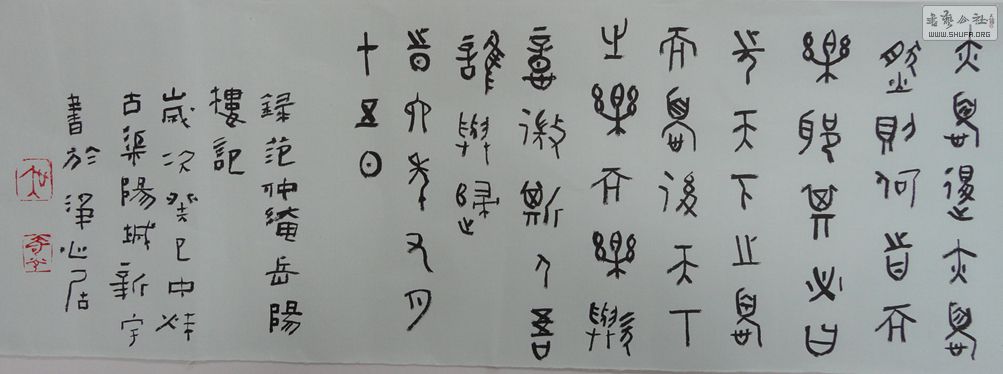 亦憂退亦憂
然則何時而
樂耶其必曰
先天下之憂
而憂後天下
之樂而樂歟
噫微斯人吾
誰與歸
時六年九月
十五日
錄范仲淹岳陽
樓記
歲次癸巳中秋
古渠陽城新宇
書於淨心居
書藝公社
WWW.SHUFA.ORG